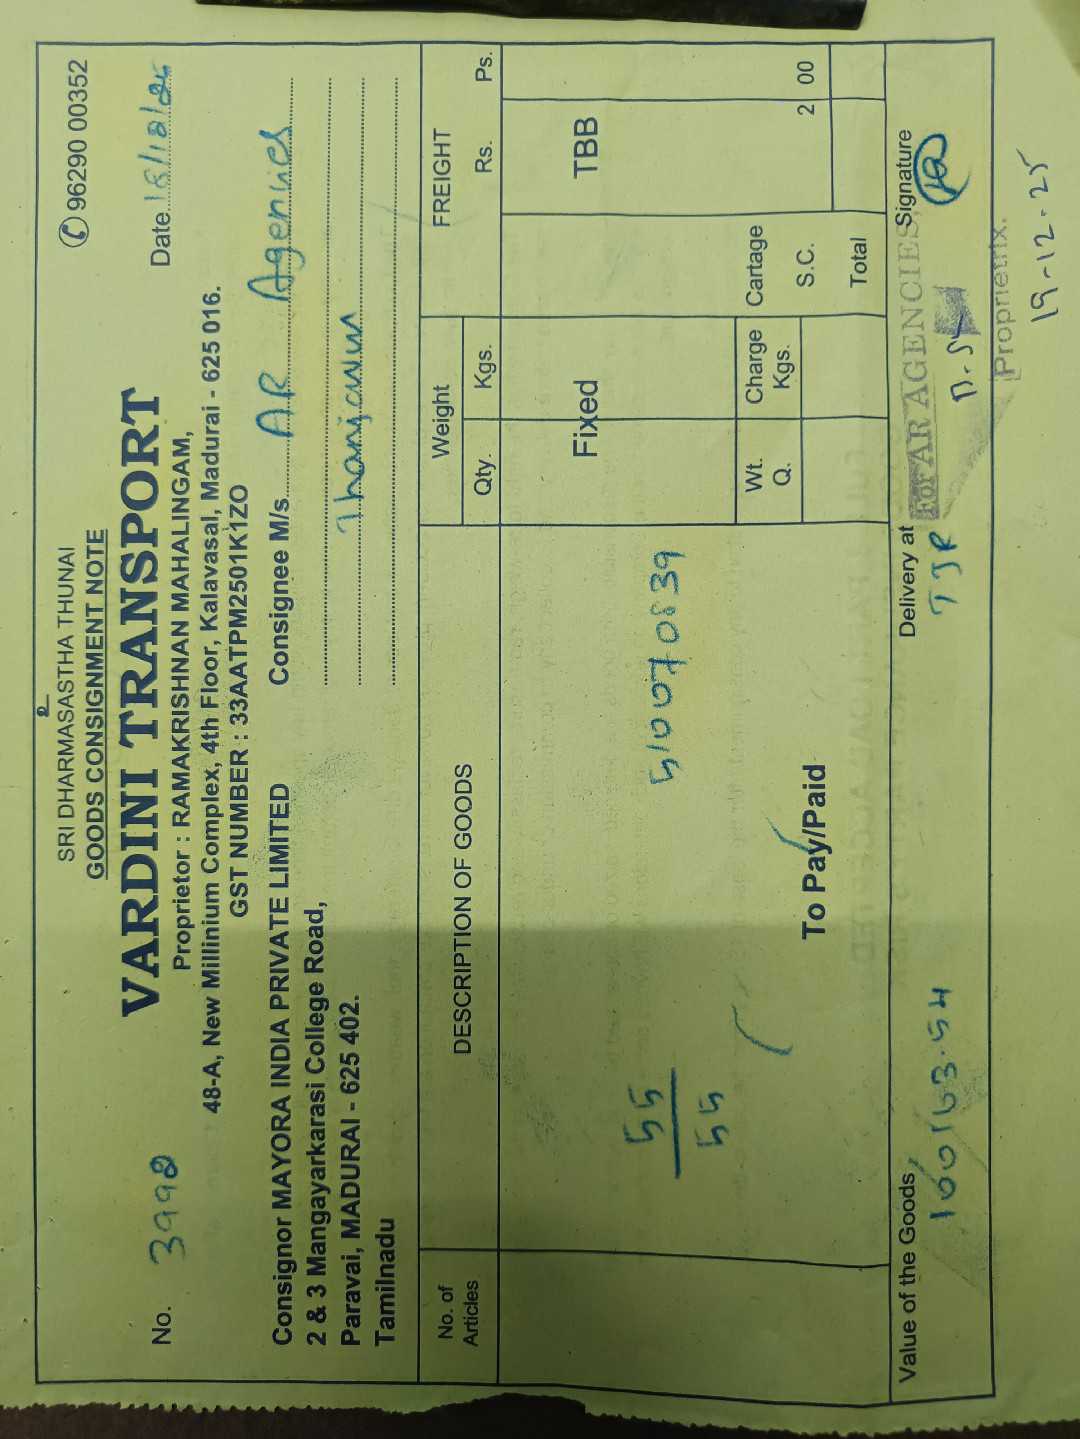 உ
SRI DHARMASASTHA THUNAI
GOODS CONSIGNMENT NOTE
✆ 96290 00352
VARDINI TRANSPORT
No. 3992
Date 18/12/25
Proprietor : RAMAKRISHNAN MAHALINGAM,
48-A, New Millinium Complex, 4th Floor, Kalavasal, Madurai - 625 016.
GST NUMBER : 33AATPM2501K1ZO
Consignor MAYORA INDIA PRIVATE LIMITED
2 & 3 Mangayarkarasi College Road,
Paravai, MADURAI - 625 402.
Tamilnadu
Consignee M/s. AR Agencies
Thanjavur
No. of Articles
DESCRIPTION OF GOODS
Weight
Qty. Kgs.
FREIGHT
Rs. Ps.
55
55
510070839
Fixed
TBB
To Pay/Paid
Wt. Q.
Charge Kgs.
Cartage
S.C. 2 00
Total
Value of the Goods
160163.54
Delivery at
TJR
Signature
For AR AGENCIES,
Proprietrix.
19-12-25